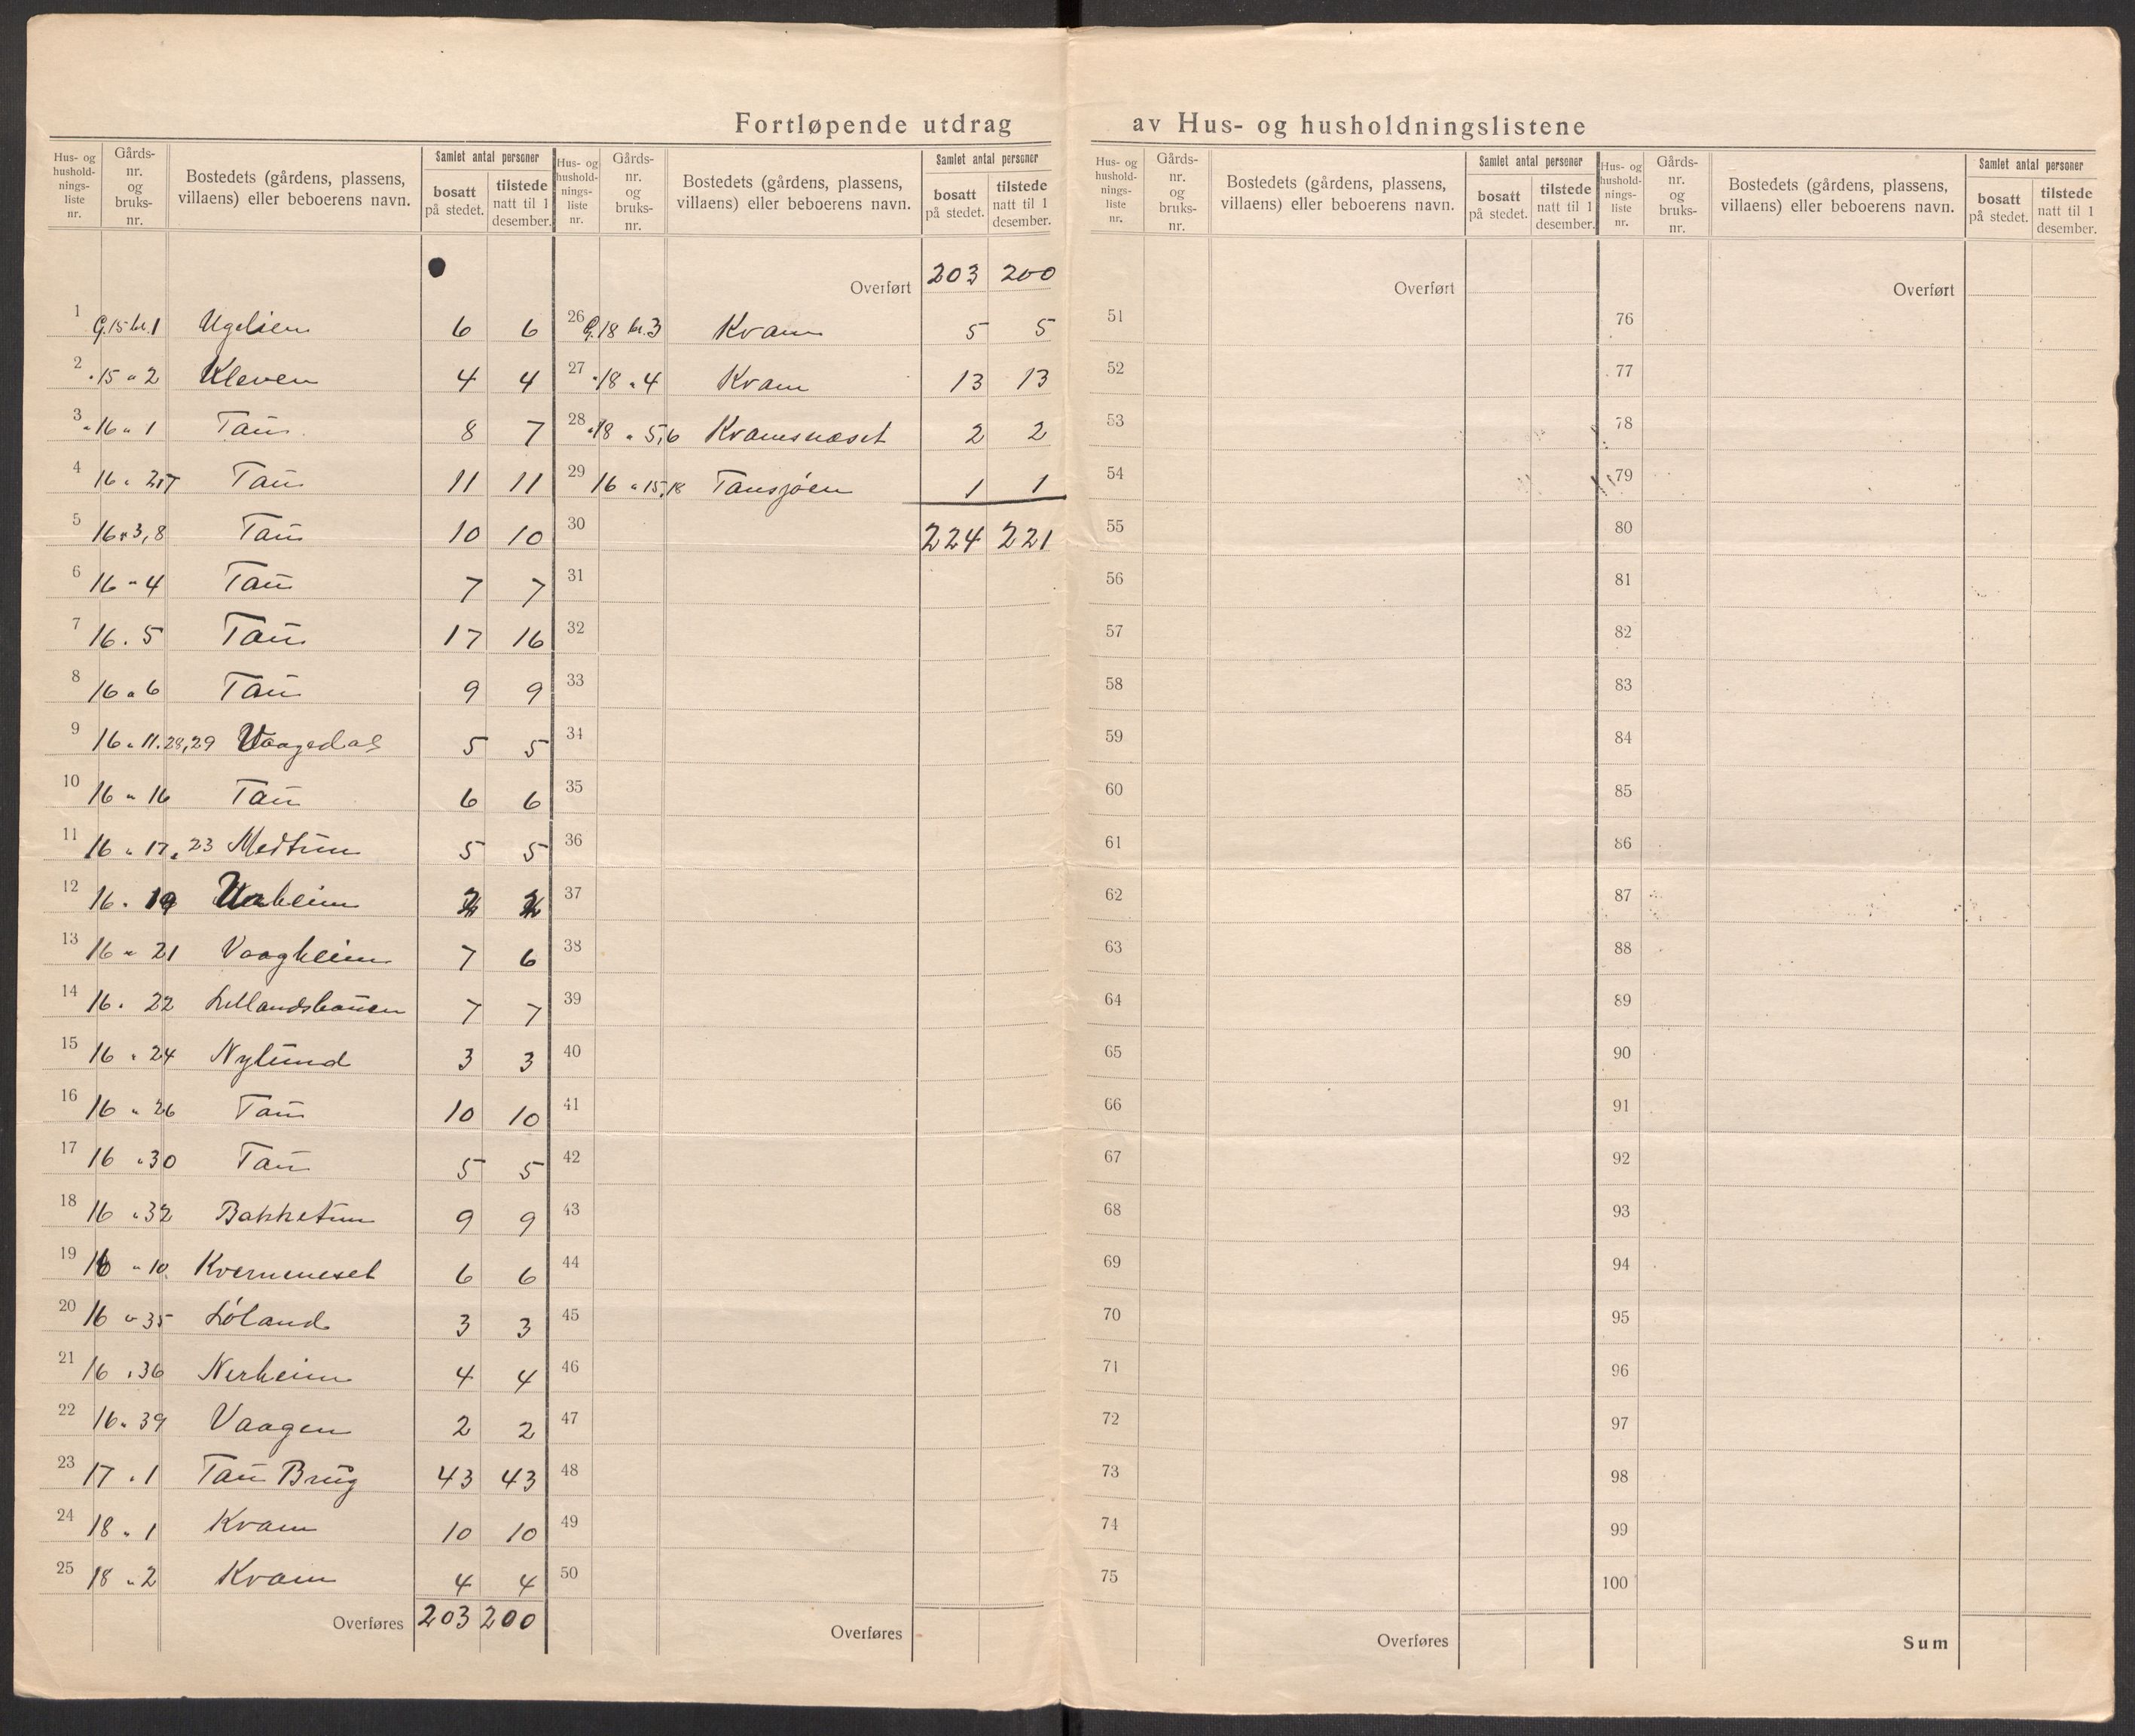 Fortløpende utdrag av Hus- og husholdningslistene
Hus- og hushold- nings- liste nr. Gårds- nr. og bruks- nr. Bostedets (gårdens, plassens, villaens) eller beboerens navn. Samlet antal personer bosatt på stedet. tilstede natt til 1 desember.
Hus- og hushold- nings- liste nr. Gårds- nr. og bruks- nr. Bostedets (gårdens, plassens, villaens) eller beboerens navn. Samlet antal personer bosatt på stedet. tilstede natt til 1 desember.
1 G.15 br.1 Ugelien 6 6
2 " 15 " 2 Kleven 4 4
3 " 16 " 1 Tau 8 7
4 16 " 2,7 Tau 11 11
5 16 " 3,8 Tau 10 10
6 16 " 4 Tau 7 7
7 16 . 5 Tau 17 16
8 16 " 6 Tau 9 9
9 16 " 11.28,29 Vaagedal 5 5
10 16 " 16 Tau 6 6
11 16 " 17, 23 Medtun 5 5
12 16 . 19
13 16 " 21 Vaagheim 7 6
14 16 . 22 7 7
15 16 " 24 Nylund 3 3
16 16 " 26 Tau 10 10
17 16 " 30 Tau 5 5
18 16 " 32 Bakketun 9 9
19 16 " 10 Kverneneset 6 6
20 16 " 35 Løland 3 3
21 16 " 36 Nerheim 4 4
22 16 " 39 Vaagen 2 2
23 17 . 1 Tau Brug 43 43
24 18 " 1 Kvam 10 10
25 18 " 2 Kvam 4 4
Overføres 203 200
Overført 203 200
26 G.18 br.3 Kvam 5 5
27 " 18 " 4 Kvam 13 13
28 " 18 " 5,6 Kvamsnæset 2 2
29 16 " 15,18 Tausjøen 1 1
30 224 221
31
32
33
34
35
36
37
38
39
40
41
42
43
44
45
46
47
48
49
50
Overføres
Hus- og hushold- nings- liste nr. Gårds- nr. og bruks- nr. Bostedets (gårdens, plassens, villaens) eller beboerens navn. Samlet antal personer bosatt på stedet. tilstede natt til 1 desember.
Overført
51
52
53
54
55
56
57
58
59
60
61
62
63
64
65
66
67
68
69
70
71
72
73
74
75
Overføres
Hus- og hushold- nings- liste nr. Gårds- nr. og bruks- nr. Bostedets (gårdens, plassens, villaens) eller beboerens navn. Samlet antal personer bosatt på stedet. tilstede natt til 1 desember.
Overført
76
77
78
79
80
81
82
83
84
85
86
87
88
89
90
91
92
93
94
95
96
97
98
99
100
Sum